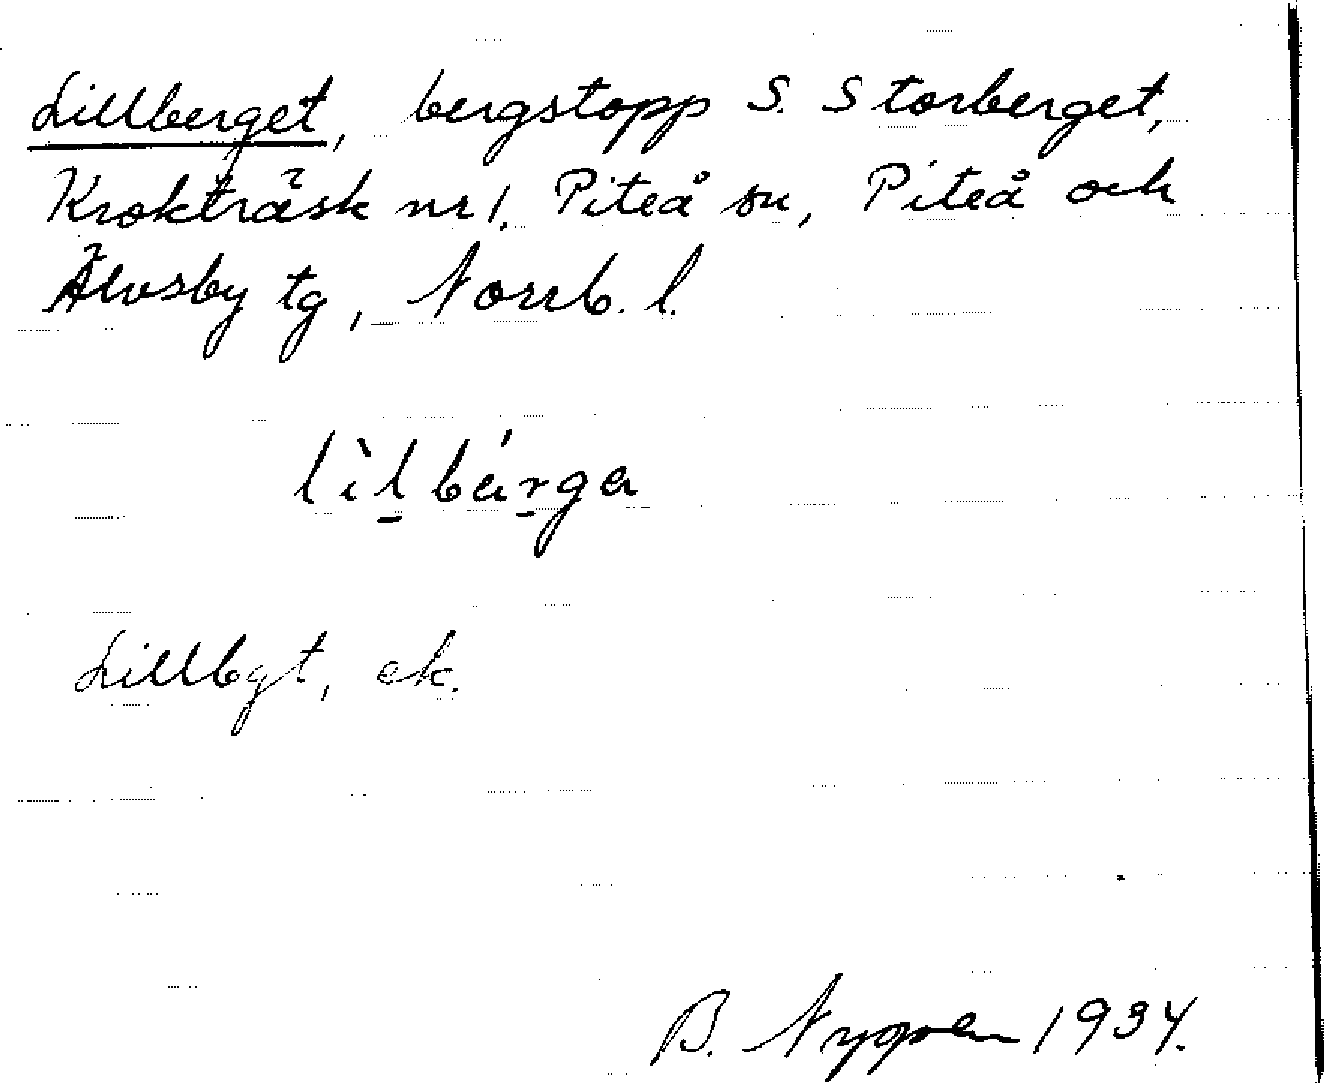 Lillberget, bergstopp S. Storberget,
Krokträsk nr 1. Piteå sn, Piteå och
Älvsby tg, Norrb. l.
lìl̠bár̠ga
Lillbgt, ek.
B. Nygren 1934.